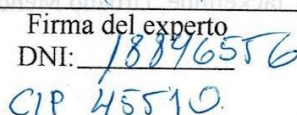 Firma del experto
DNI: 18896556
CIP 45510.